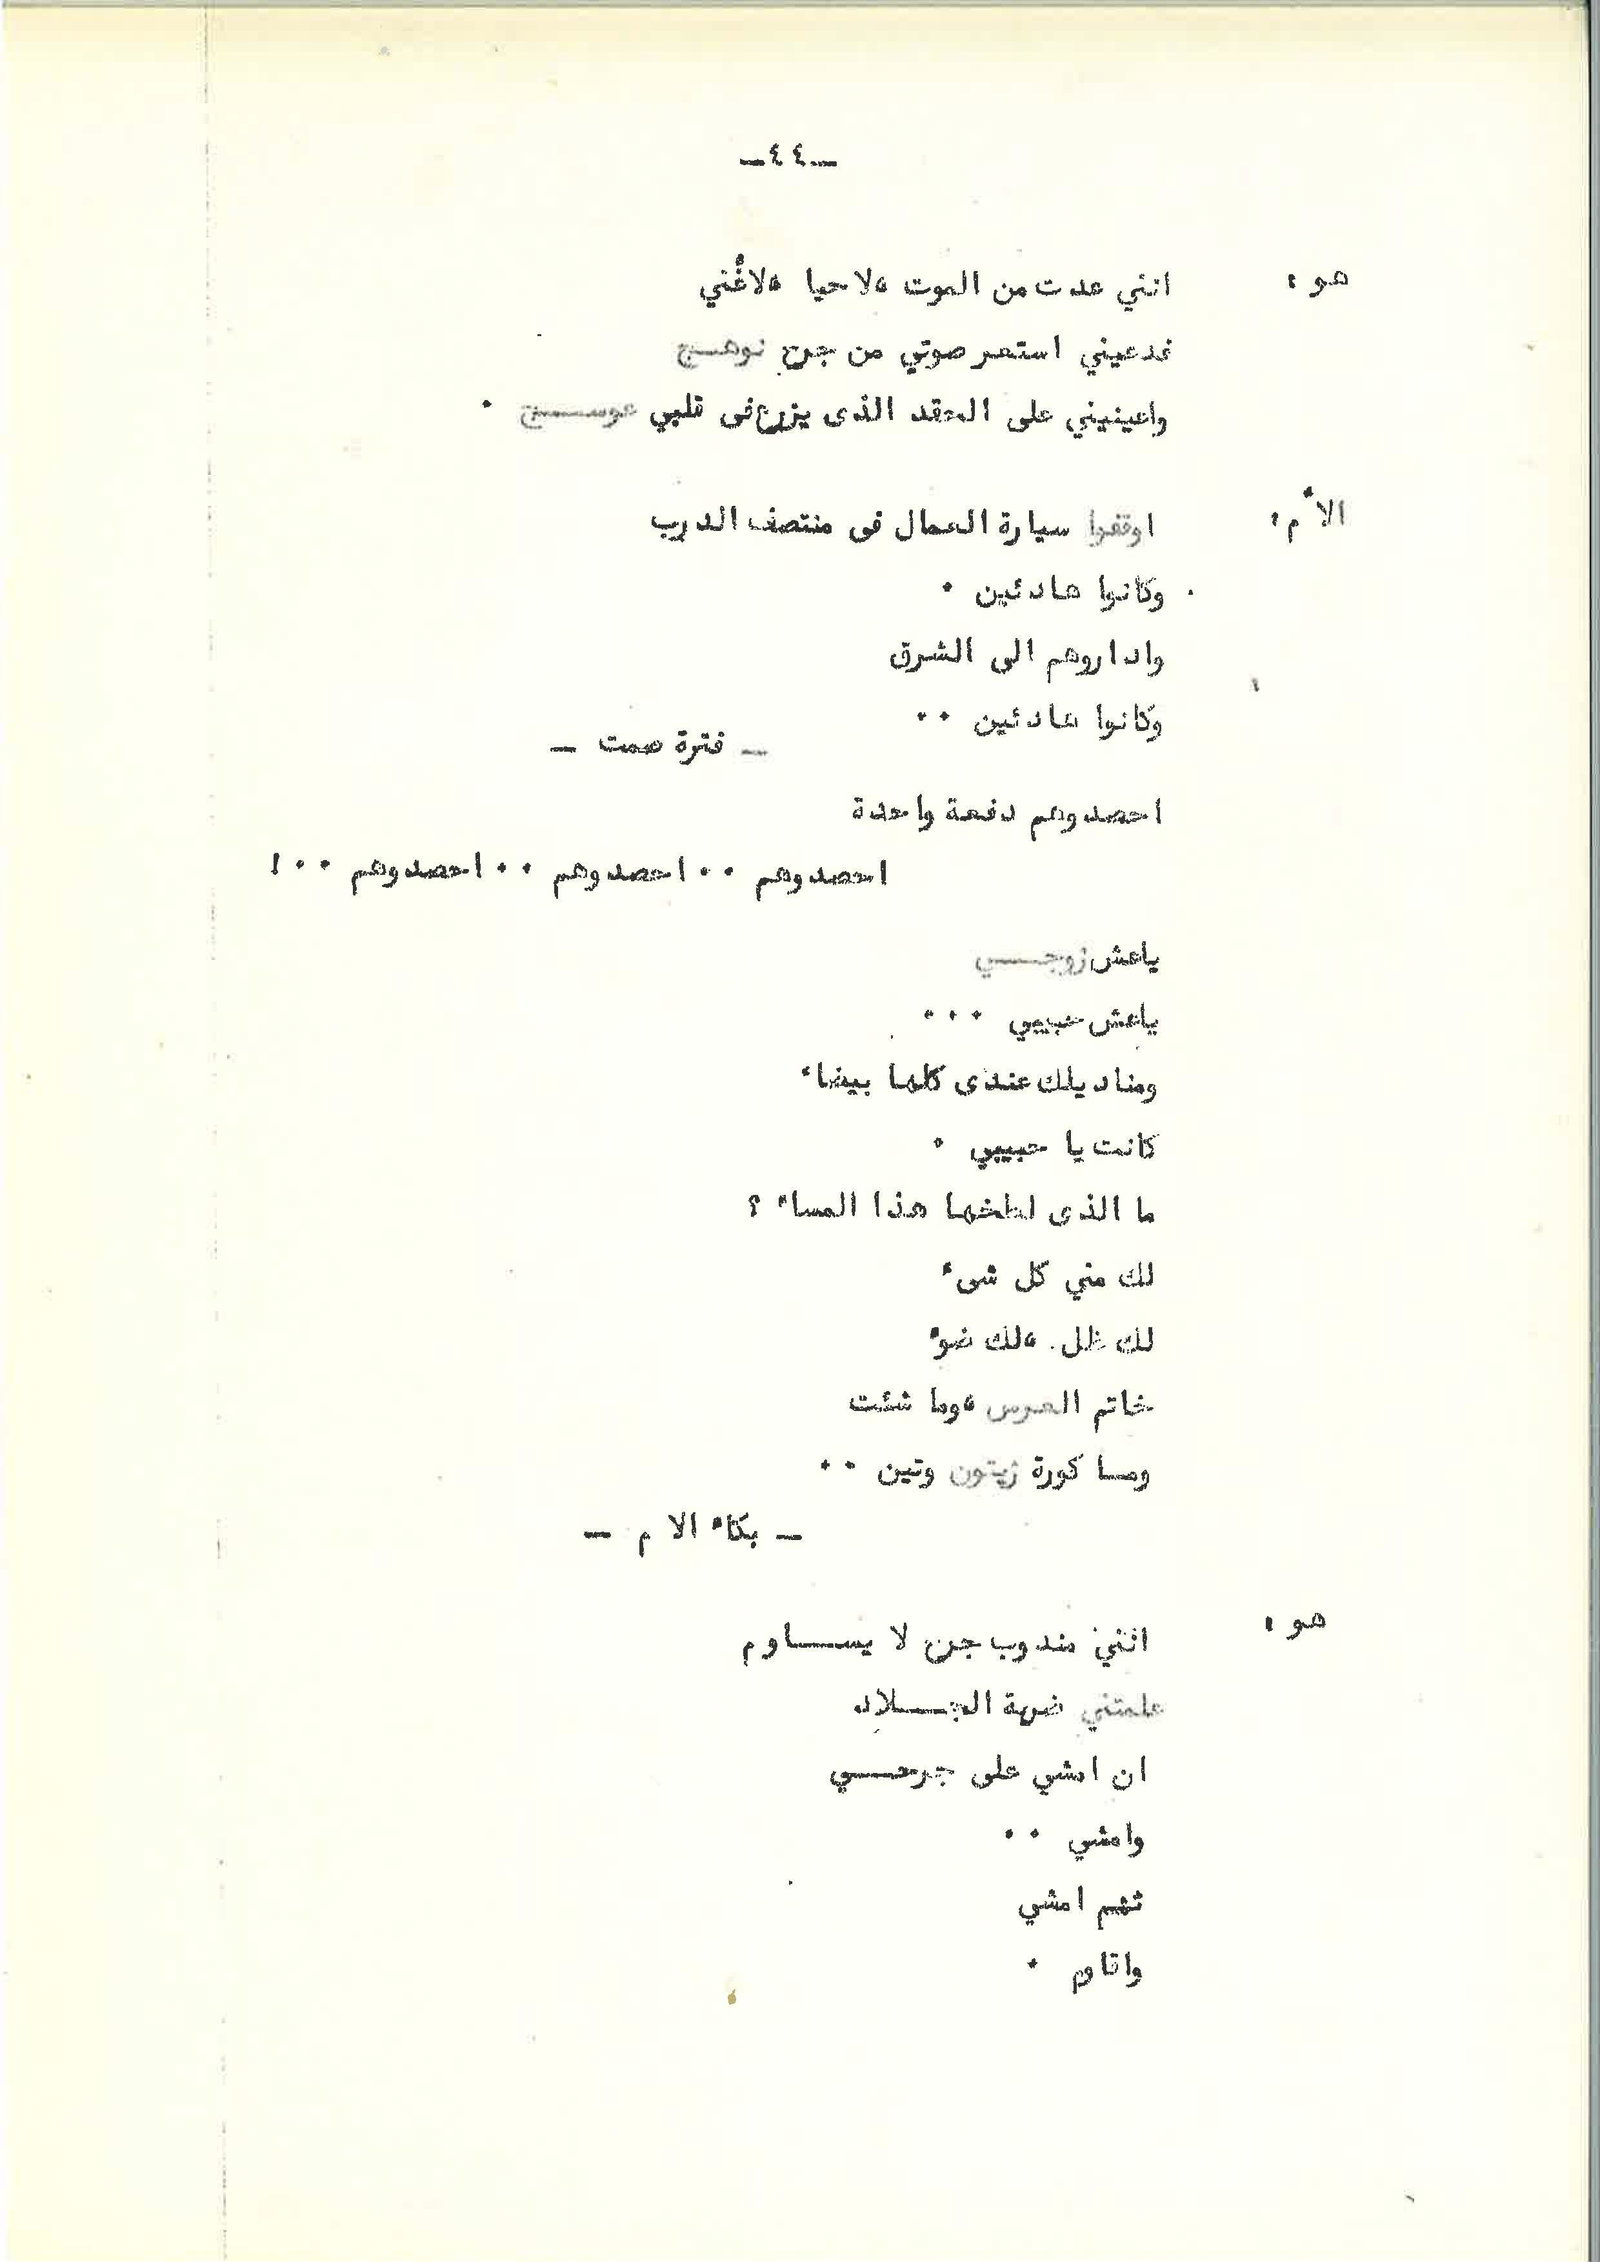 -٤٤-
هو :
انني عدت من الموت ،لاحيا ،لاغُني
فدعيني استعر صوتي من جرح توهـج
واعينيني على الحقد الذى يزرع فى قلبي عوســج .
الأم:
اوقفوا سيارة العمال فى منتصف الدرب
وكانوا هادئين .
واداروهم الى الشرق
وكانوا هادئين ..
- فترة صمت -
احصدوهم دفعة واحدة
احصدوهم .. احصدوهم .. احصدوهم .. !
ياعش زوجــي
ياعش حبيبي ...
ومناديلك عندى كلها بيضاء
كانت يا حبيبي .
ما الذى لطخها هذا المساء ؟
لك مني كل شىء
لك ظل ،لك ضوء
خاتم العرس ،وما شئت
ومـا كورة زيتون وتين ..
- بكاء الام -
هو :
انني مندوب جرح لا يســاوم
علمتني ضربة الجــلاد
ان امشي على جرحــي
وامشي ..
ثـم امشي
واقاوم .